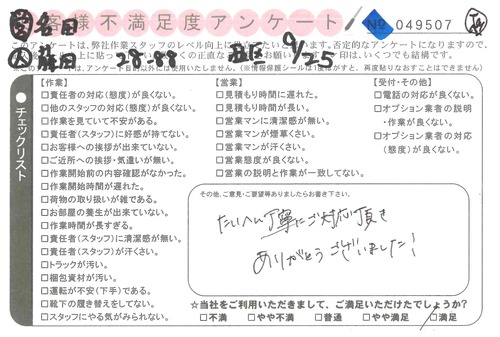 お客様不満足度アンケート
No 049507
28-88 西区 9/25
このアンケートは、弊社作業スタッフのレベル向上に
【作業】
□責任者の対応(態度)が良くない。
□他のスタッフの対応(態度)が良くない。
□作業を見ていて不安がある。
□責任者(スタッフ)に好感が持てない。
□お客様への挨拶が出来ていない。
□ご近所への挨拶・気遣いが無い。
□作業開始前の内容確認がなかった。
□作業開始時間が遅れた。
□荷物の取り扱いが雑である。
□お部屋の養生が出来ていない。
□作業時間が長すぎる。
□責任者(スタッフ)に清潔感が無い。
□責任者(スタッフ)が汗くさい。
□トラックが汚い。
□梱包資材が汚い。
□運転が不安(下手)である。
□靴下の履き替えをしてない。
□スタッフにやる気がみられない。
【営業】
□見積もり時間に遅れた。
□見積もり時間が長い。
□営業マンに清潔感が無い。
□営業マンが煙草くさい。
□営業マンが汗くさい。
□営業態度が良くない。
□営業の説明と作業が一致してない。
【受付・その他】
□電話の対応が良くない。
□オプション業者の説明
・作業が良くない。
□オプション業者の対応
(態度)が良くない。
チェックリスト
その他、ご意見・ご要望等ありましたらお書き下さい。
たいへん丁寧にご対応頂き
ありがとうございました!
☆当社をご利用いただきまして、ご満足いただけたでしょうか?
□不満 □やや不満 □普通 □やや満足 □満足